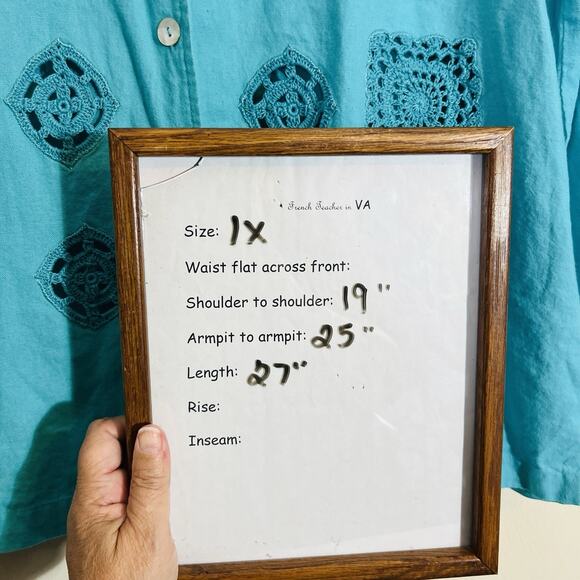 French Teacher in VA
Size: 1X
Waist flat across front:
Shoulder to shoulder: 19"
Armpit to armpit: 25"
Length: 27"
Rise:
Inseam: